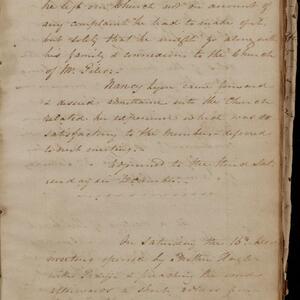 he left our Church not on account of
any complaint he had to make of it,
but solely that he might go along with
his family & connexion to the Church
of Mr.
Nancy Lyon came forward
& asked admittance into the Church
related her experience which was so
satisfactory to the Members deferred
to next meeting.
Adjourned to the third Sat
urday in December.
On Saturday the 15th Dec
meeting opened by Brother
with Prayer & preaching the
afterwards a short